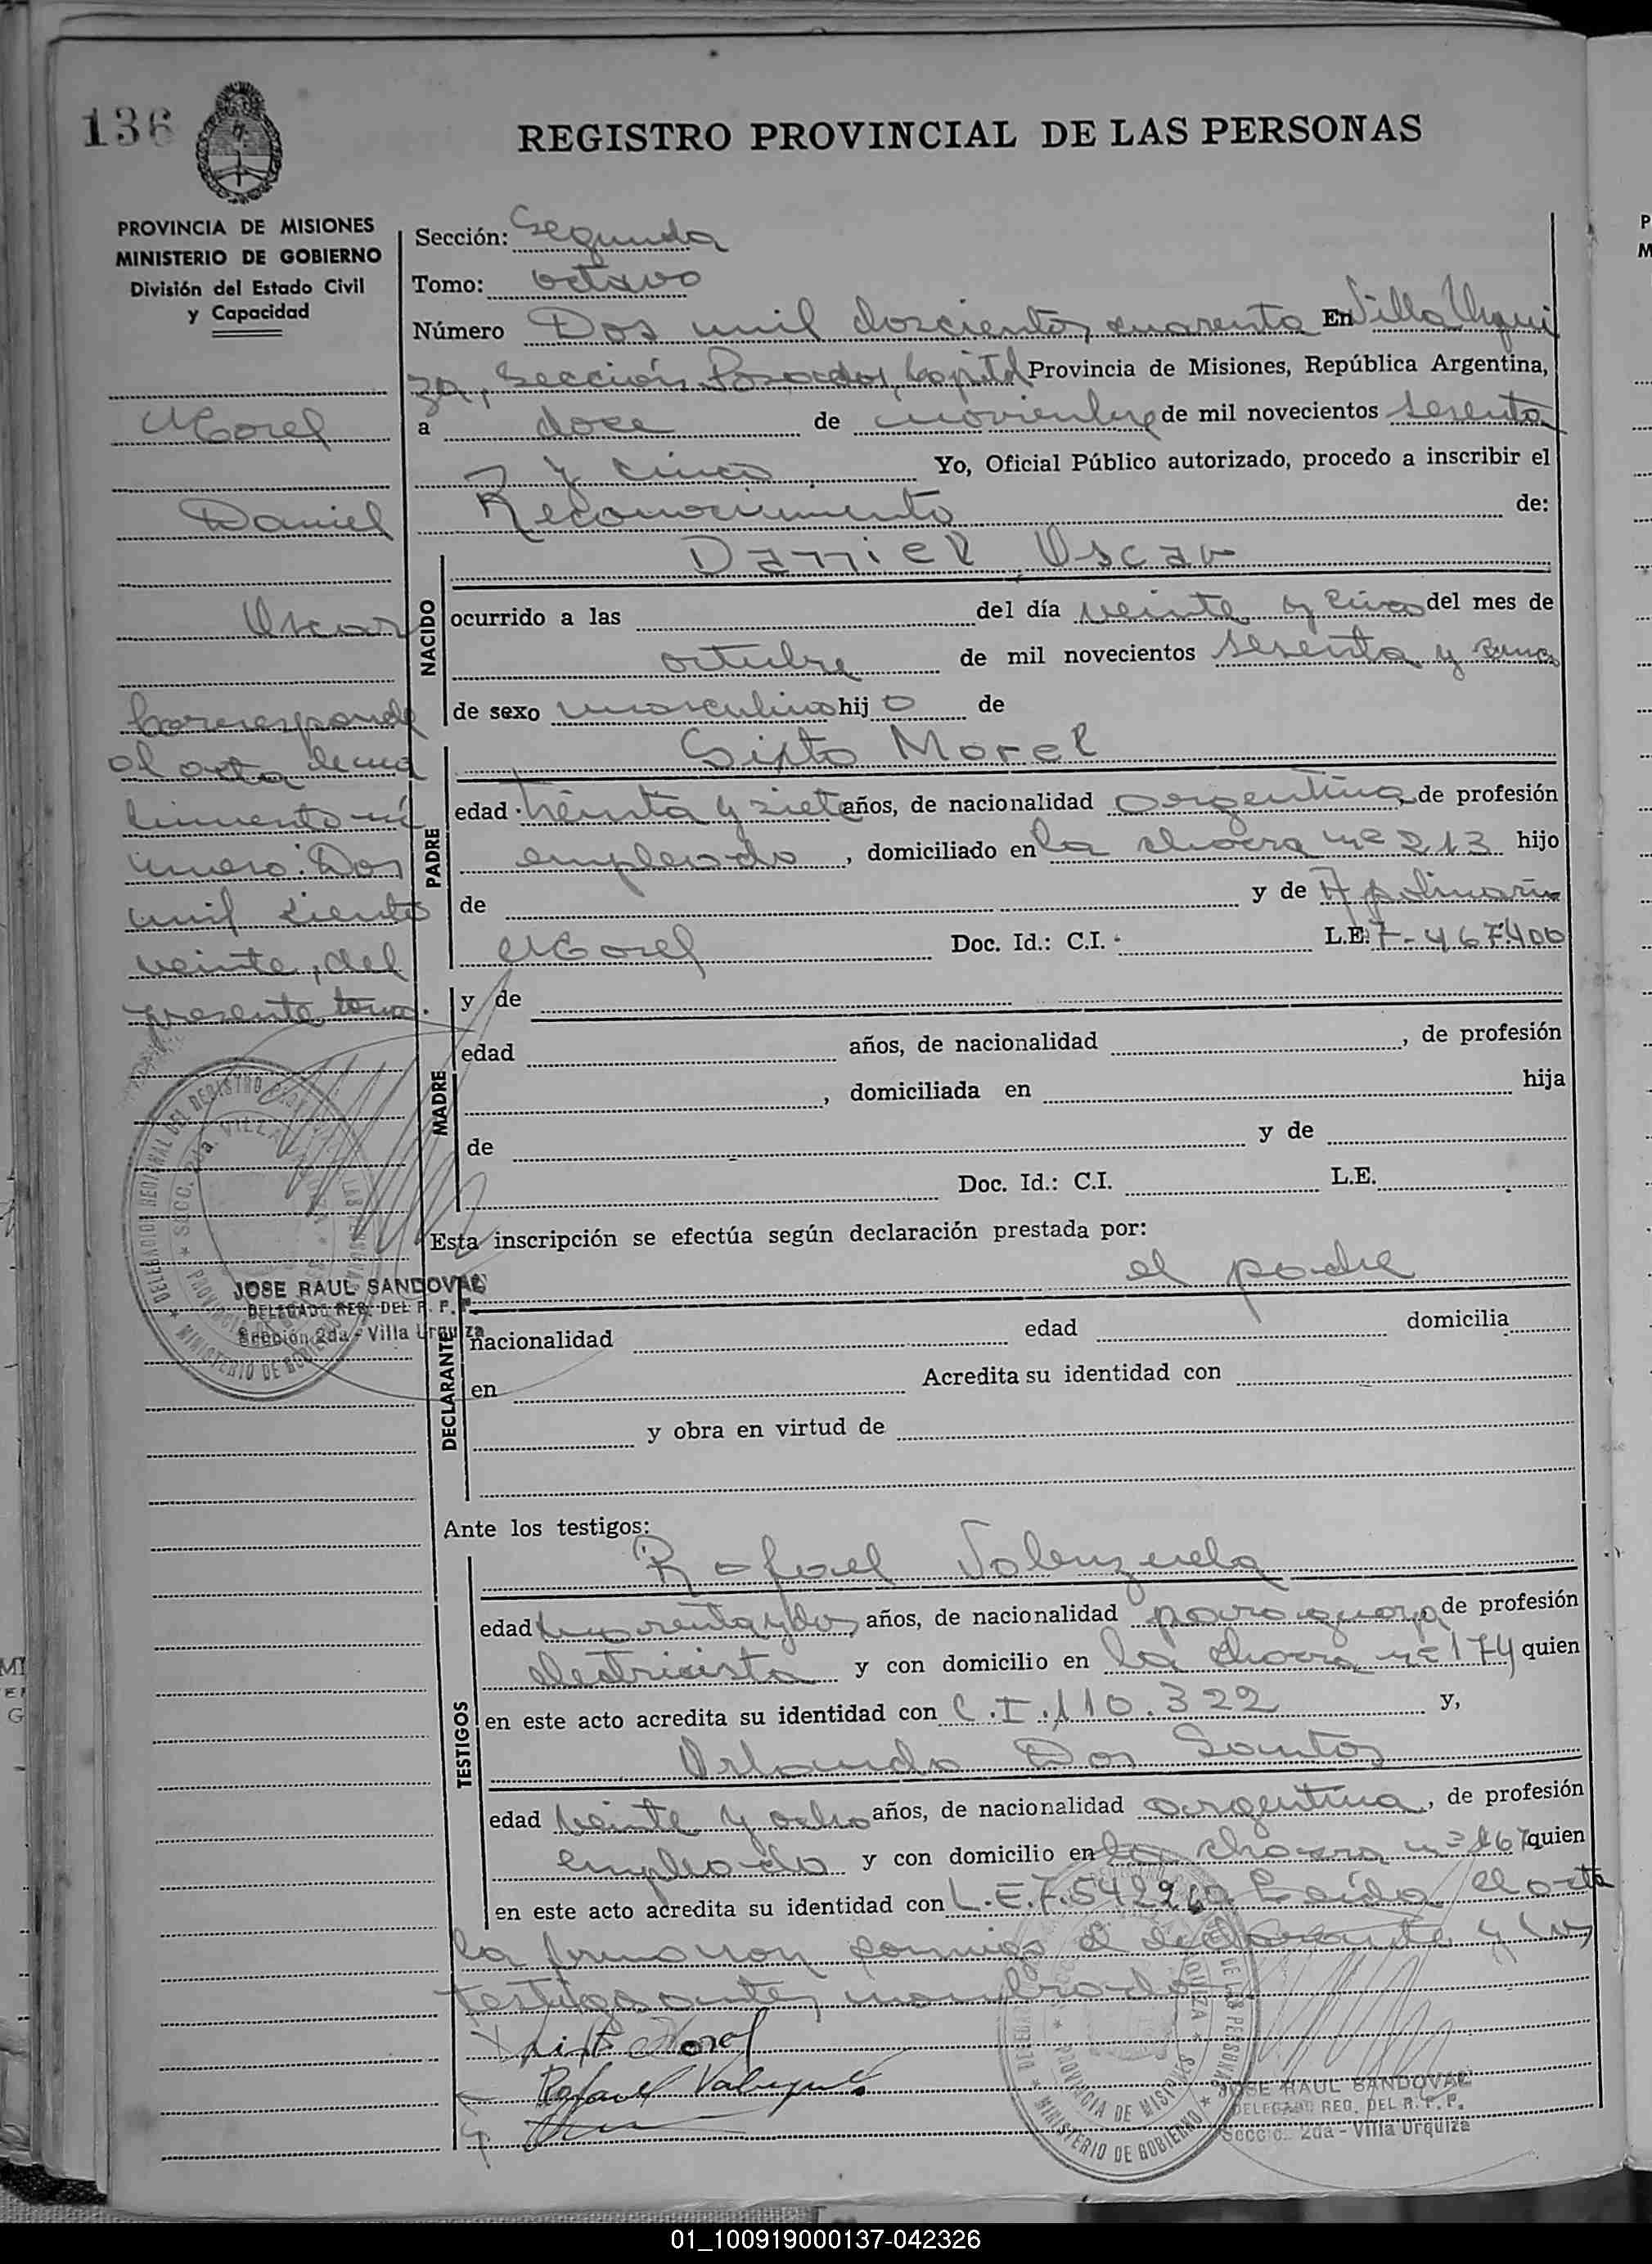 136
REGISTRO PROVINCIAL DE LAS PERSONAS
PROVINCIA DE MISIONES
MINISTERIO DE GOBIERNO
División del Estado Civil
y Capacidad
Morel
Daniel
Oscar
Corresponde
al acta de naci
miento nú
mero: Dos
mil ciento
veinte, del
presente tomo.
JOSE RAUL SANDOVAL
DELEGADO REG. DEL R. P. P.
Sección 2da - Villa Urquiza
Sección: Segunda
Tomo: octavo
Número Dos mil doscientos cuarenta En Villa Urqui
za, Sección Posadas, Capital Provincia de Misiones, República Argentina,
a doce de noviembre de mil novecientos sesenta
y cinco Yo, Oficial Público autorizado, procedo a inscribir el
Reconocimiento de:
NACIDO
Daniel Oscar
ocurrido a las del día veinte y cinco del mes de
octubre de mil novecientos sesenta y cinco
de sexo masculino hijo de
PADRE
Sixto Morel
edad treinta y siete años, de nacionalidad argentina, de profesión
empleado, domiciliado en la chacra nº 213 hijo
de y de Apolinaria
Morel Doc. Id.: C.I. L.E. 7.467.400
MADRE
y de
edad años, de nacionalidad , de profesión
, domiciliada en hija
de y de
Doc. Id.: C.I. L.E.
Esta inscripción se efectúa según declaración prestada por:
el padre
DECLARANTE
nacionalidad edad domicilia
en Acredita su identidad con
y obra en virtud de
Ante los testigos:
TESTIGOS
Rafael Valenzuela
edad cuarenta y dos años, de nacionalidad paraguaya de profesión
electricista y con domicilio en la chacra nº 174 quien
en este acto acredita su identidad con C.I. 110.322 y,
Orlando Dos Santos
edad veinte y ocho años, de nacionalidad argentina, de profesión
empleado y con domicilio en la chacra nº 167 quien
en este acto acredita su identidad con L.E. 7.542.960 Leída el acta
la firmaron conmigo el declarante y los
testigos antes nombrados
Sixto Morel
Rafael Valenzuela
JOSE RAUL SANDOVAL
DELEGADO REG. DEL R. P. P.
Sección 2da - Villa Urquiza
01_100919000137-042326